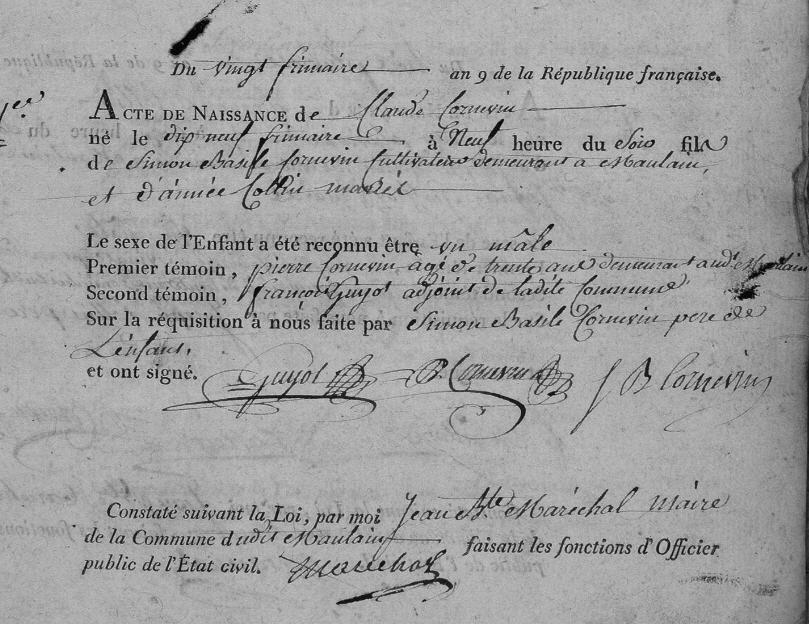 Du vingt frimaire an 9 de la République française.
Acte de Naissance de Claude Cornevin
né le dix neuf frimaire à Neuf heure du Soir fils
de Simon Basile Cornevin Cultivateur demeurant a Maulain,
et d'année Collin mariés
Le sexe de l'Enfant a été reconnu être un mâle
Premier témoin, pierre Cornevin âgé de trente ans demeurant audt. Maulain
Second témoin, françois Guyot adjoint de ladite Commune
Sur la réquisition à nous faite par Simon Basile Cornevin pere de
L'enfant,
et ont signé. Guyot P. Cornevin S B Cornevin
Constaté suivant la Loi, par moi Jean Bte Maréchal maire
de la Commune dudit Maulain faisant les fonctions d'Officier
public de l'État civil. Marechal